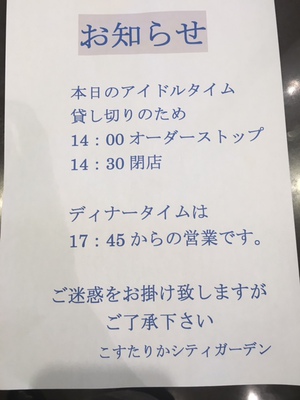 お知らせ
本日のアイドルタイム
貸し切りのため
14：00オーダーストップ
14：30閉店
ディナータイムは
17：45からの営業です。
ご迷惑をお掛け致しますが
ご了承下さい
こすたりかシティガーデン